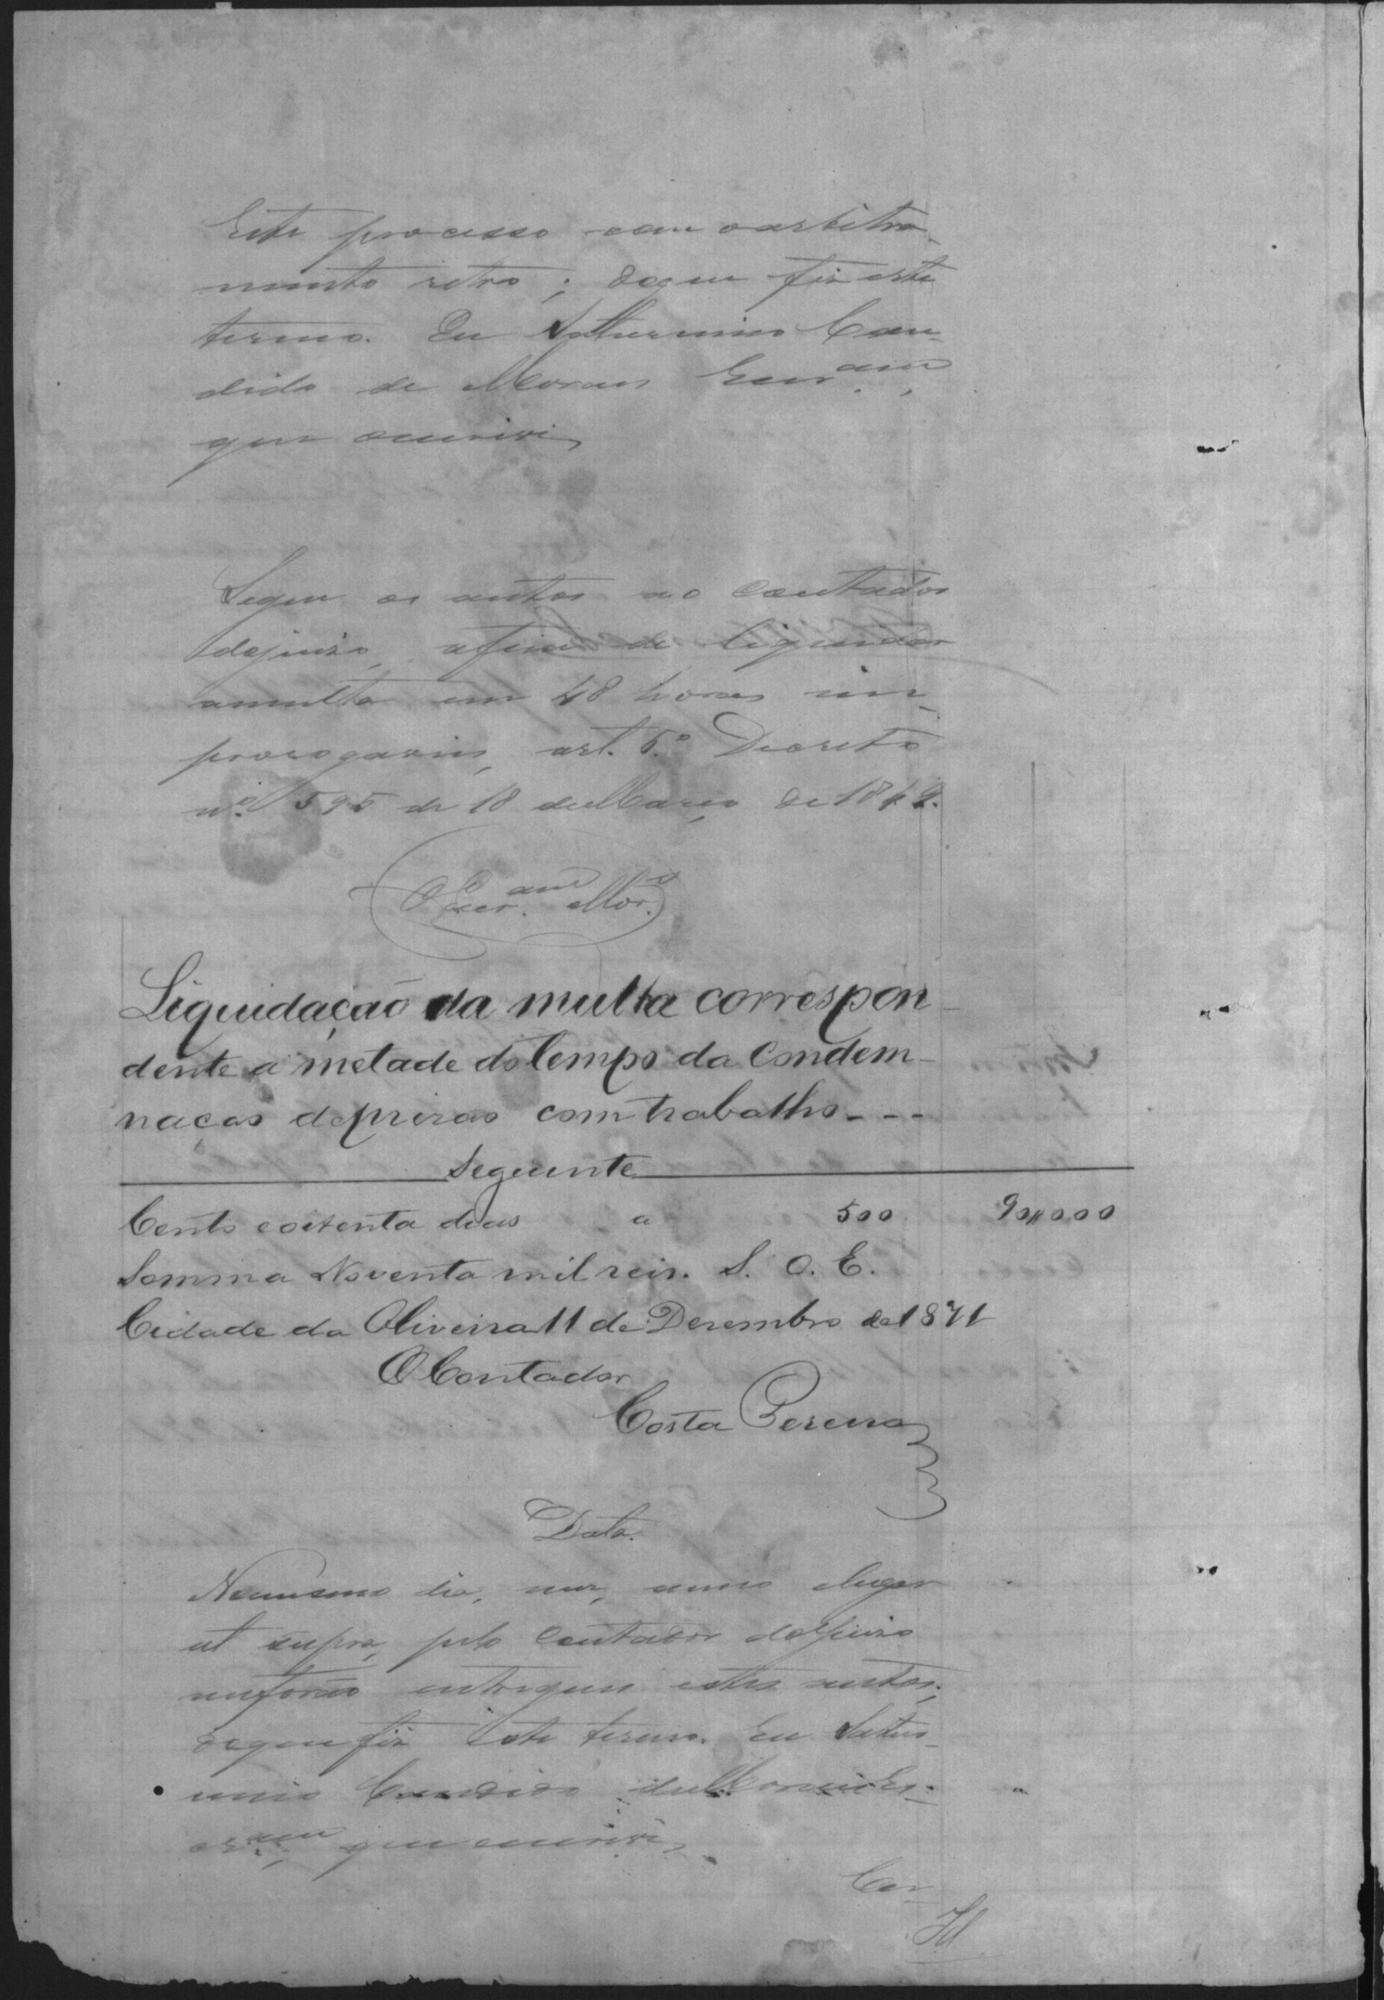 Este processo com o arbitra-
mento retro; do que fiz este
termo. Eu Saturnino Can-
dido de Moraes Escr.am,
que escrivi,
Segue os autos ao Contador
do juizo, afim de liquidar
a multa em 48 horas im-
prorogaveis, art. 5.º Decreto
nº 595 de 18 de Março de 1849.
O Escr.am Mor.s
Liquidação da multa correspon-
dente a metade do tempo da Condem-
nação de prizão com trabalho - - -
Seguinte
Cento e oitenta dias a 500 90#000
Somma Noventa mil reis. S. O. E.
Cidade da Oliveira 11 de Dezembro de 1871
O Contador
Costa Pereira
Data.
No mesmo dia, mez, anno e lugar
ut supra, pelo Contador do Juizo
me forão entregues estes autos;
do que fiz este termo. Eu Satur-
nino Candido de Moraes Es-
cr.am, que escrivi,